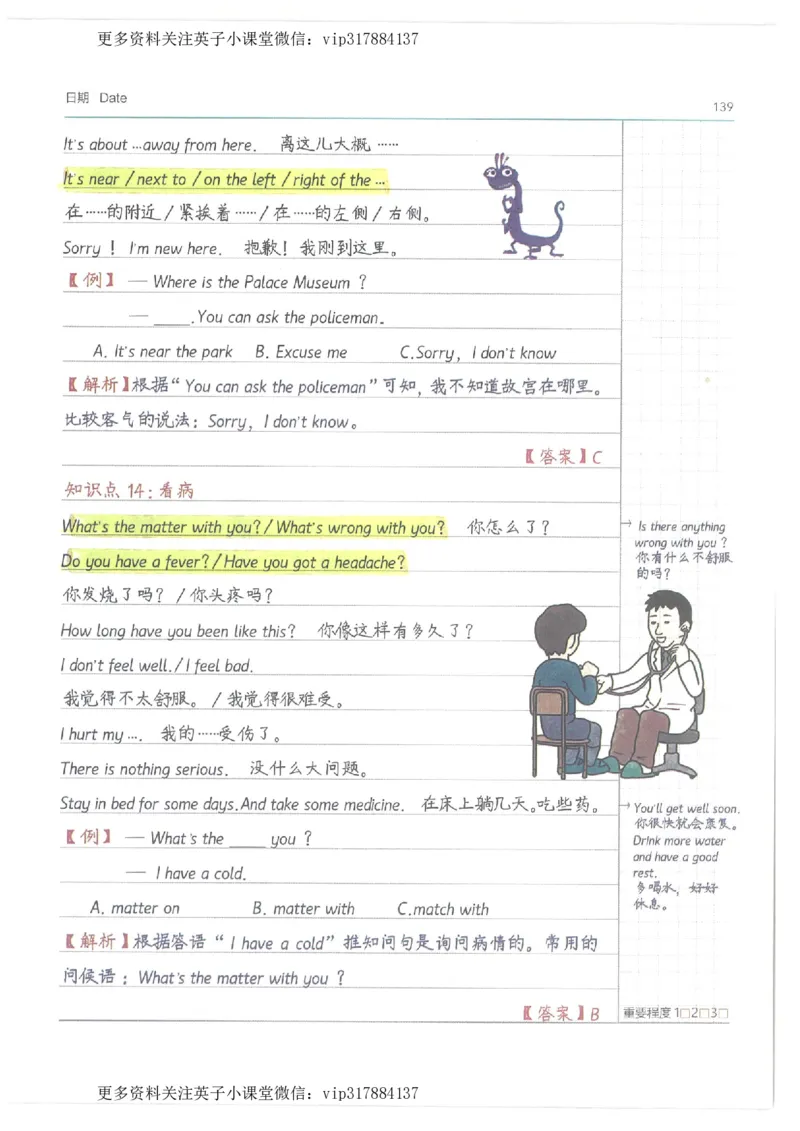 更多资料关注英子小课堂微信：vip317884137
日期 Date
139
It's about …away from here. 离这儿大概……
It's near / next to / on the left / right of the …
在……的附近 / 紧挨着…… / 在……的左侧 / 右侧。
Sorry！I'm new here. 抱歉！我刚到这里。
【例】 — Where is the Palace Museum ?
— ____.You can ask the policeman.
A. It's near the park B. Excuse me C.Sorry，I don't know
【解析】根据“You can ask the policeman”可知，我不知道故宫在哪里。
比较客气的说法：Sorry，I don't know。
【答案】C
知识点 14：看病
What's the matter with you? / What's wrong with you? 你怎么了？
Do you have a fever? / Have you got a headache?
你发烧了吗？ / 你头疼吗？
How long have you been like this? 你像这样有多久了？
I don't feel well. / I feel bad.
我觉得不太舒服。 / 我觉得很难受。
I hurt my …. 我的……受伤了。
There is nothing serious. 没什么大问题。
Stay in bed for some days.And take some medicine. 在床上躺几天。吃些药。
【例】 — What's the ____ you ?
— I have a cold.
A. matter on B. matter with C.match with
【解析】根据答语“ I have a cold”推知问句是询问病情的。常用的
问候语：What's the matter with you ?
【答案】B
→ Is there anything
wrong with you ?
你有什么不舒服
的吗？
→ You'll get well soon.
你很快就会康复。
Drink more water
and have a good
rest.
多喝水，好好
休息。
重要程度 1□2□3□
更多资料关注英子小课堂微信：vip317884137